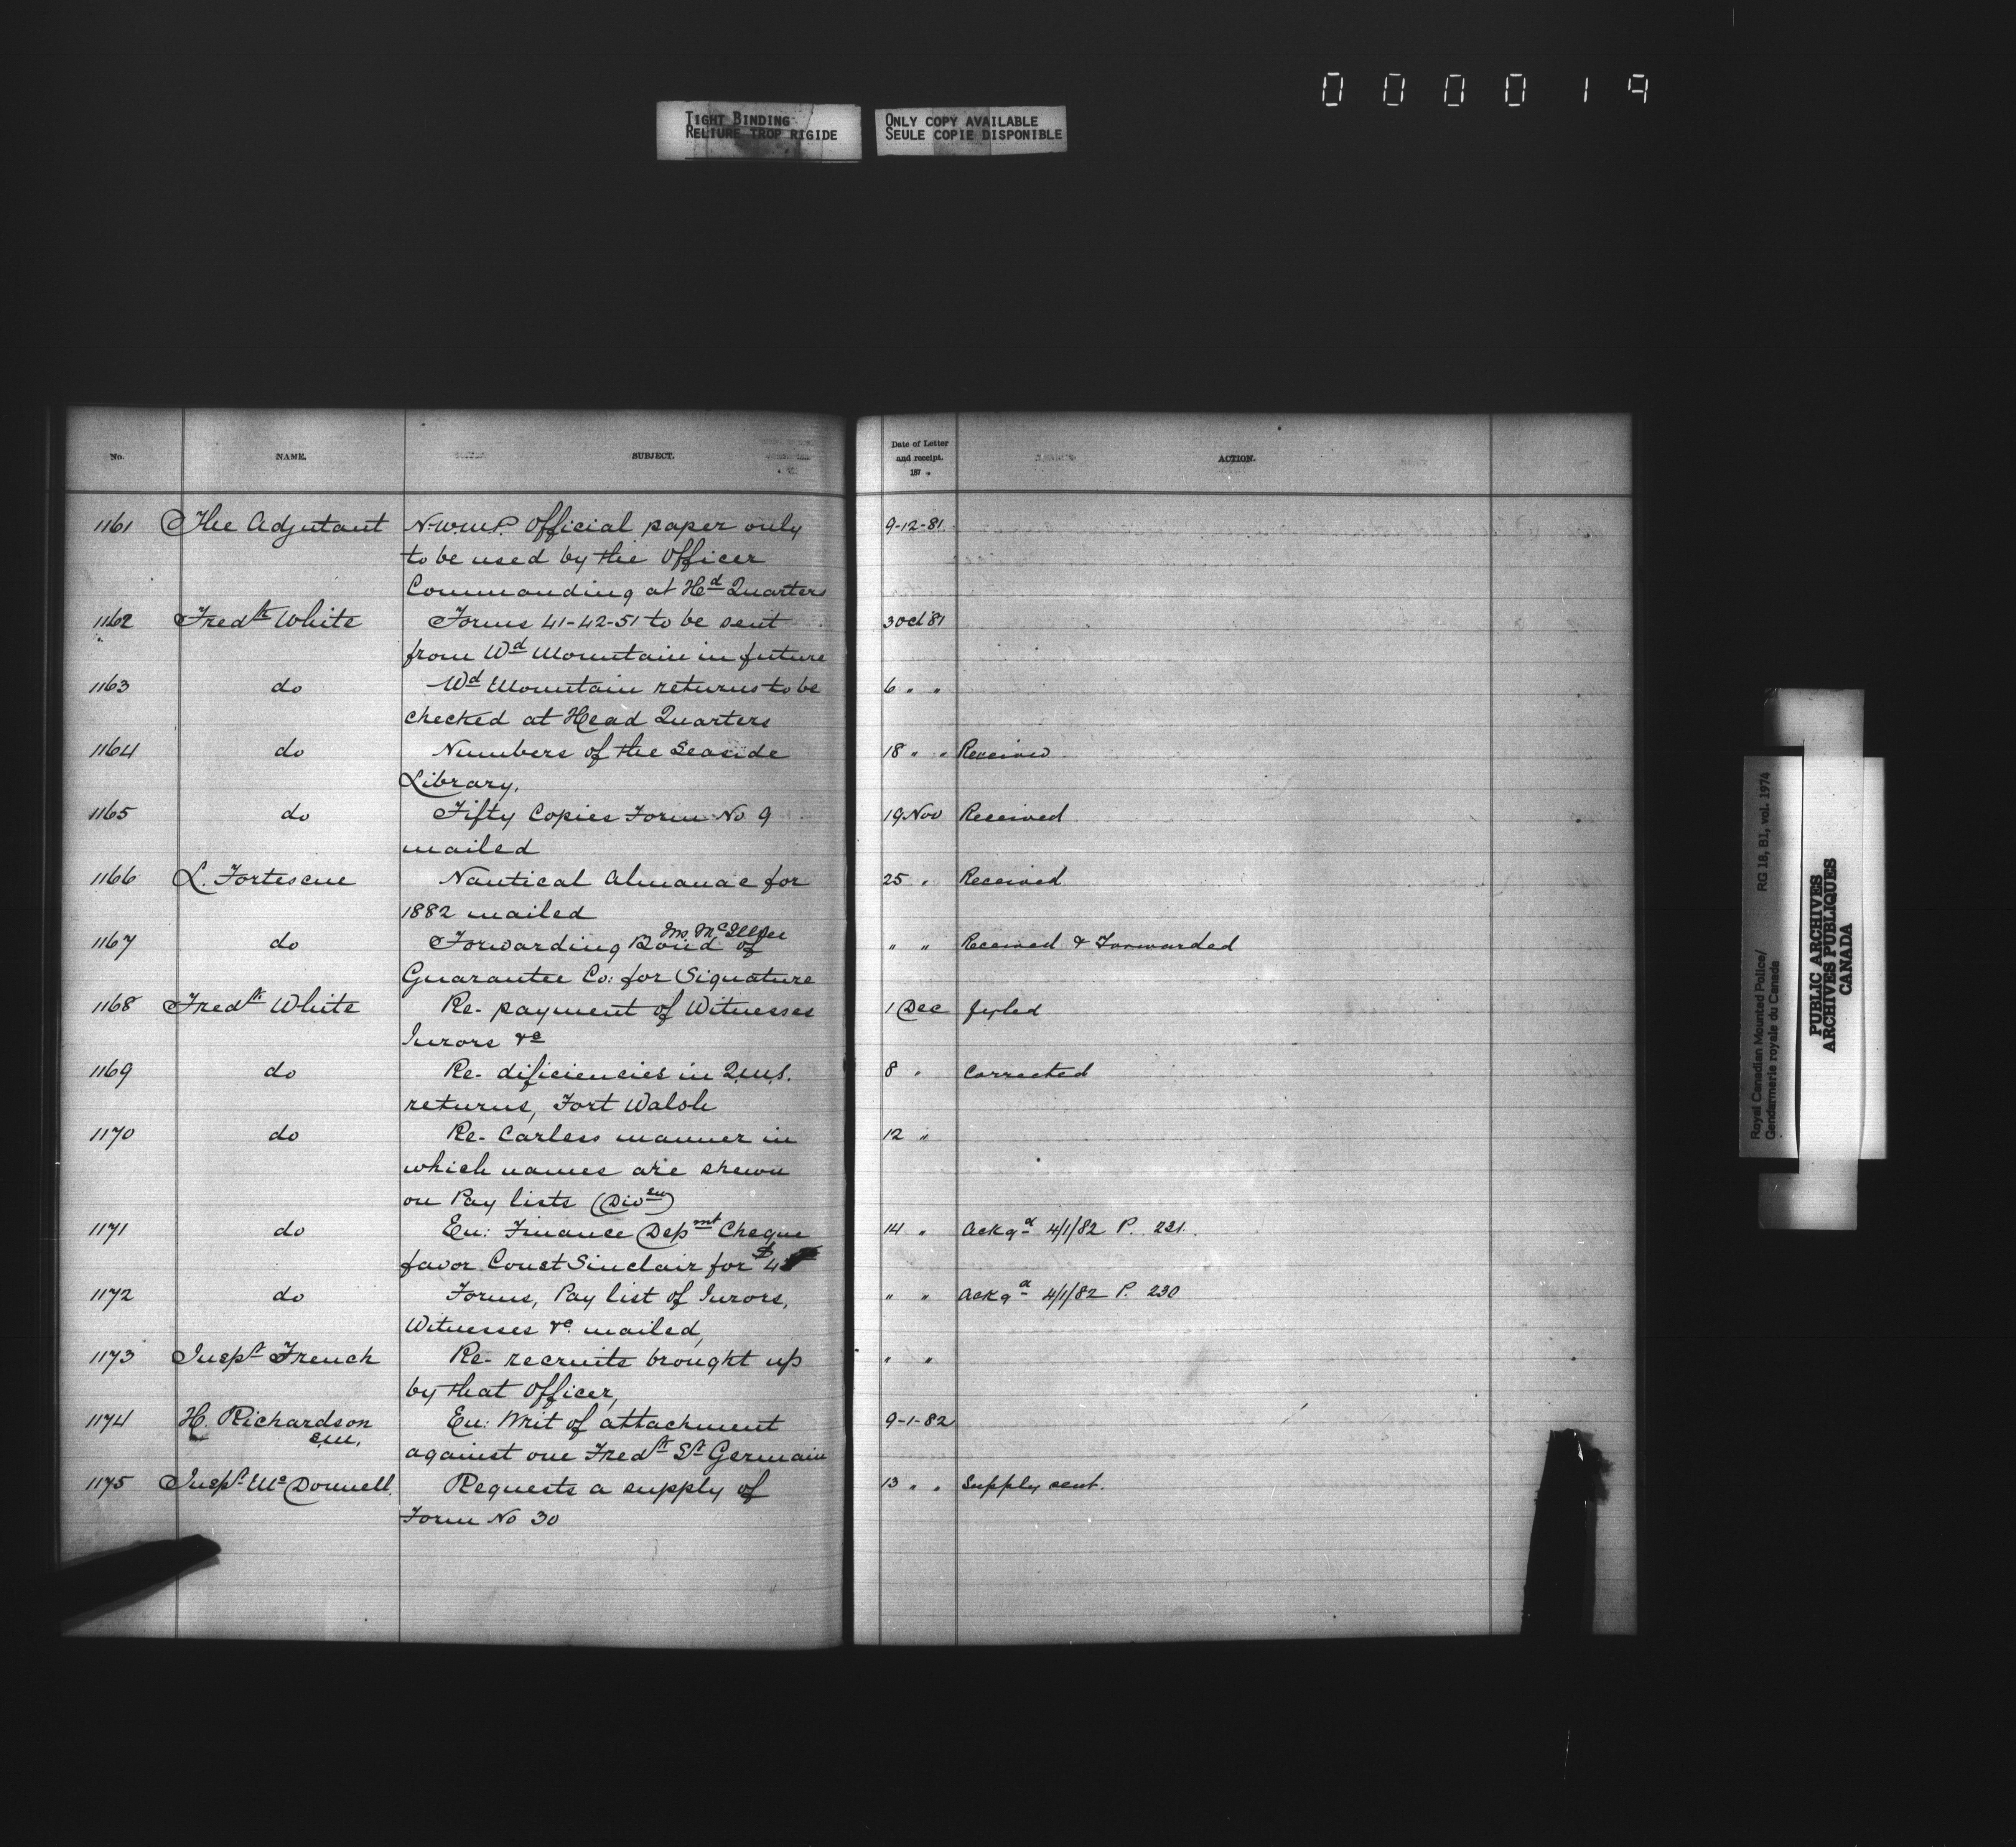 0 0 0 0 1 9
TIGHT BINDING
RELIURE TROP RIGIDE
ONLY COPY AVAILABLE
SEULE COPIE DISPONIBLE
No. NAME. SUBJECT. Date of Letter and receipt. 187 ACTION.
1161 The Adjutant N.W.M.P. Official paper only 9-12-81
to be used by the Officer
Commanding at Hd Quarters
1162 Fredk White Forms 41-42-51 to be sent 3 Oct 81
from Wd Mountain in future
1163 do Wd Mountain returns to be 6 " "
checked at Head Quarters
1164 do Numbers of the Seaside 18 " " Received
Library.
1165 do Fifty Copies Form No 9 19 Nov Received
mailed
1166 L. Fortescue Nautical Almanac for 25 " Received
1882 mailed
1167 do Forwarding Bond of " " Received & Forwarded
Guarantee Co: for Signature
1168 Fredk White Re- payment of Witnesses 1 Dec fyled
Jurors &c
1169 do Re- dificiencies in Q.M.S. 8 " Corrected
returns, Fort Walsh
1170 do Re- Carless manner in 12 "
which names are shewn
on Pay lists (Divsn)
1171 do En: Finance Depmt Cheque 14 " Ackgd 4/1/82 P. 221.
favor Const Sinclair for $
1172 do Forms, Pay list of Jurors, " " Ackgd 4/1/82 P. 230
Witnesses &c mailed,
1173 Inspt French Re- recruits brought up " "
by that Officer,
1174 H. Richardson En: Writ of attachment 9-1-82
S.M.
against one Fredk St Germain
1175 Inspt McDonnell. Requests a supply of 13 " " Supply sent.
Form No 30
Royal Canadian Mounted Police/ RG 18, B1, vol. 1974
Gendarmerie royale du Canada
PUBLIC ARCHIVES
ARCHIVES PUBLIQUES
CANADA